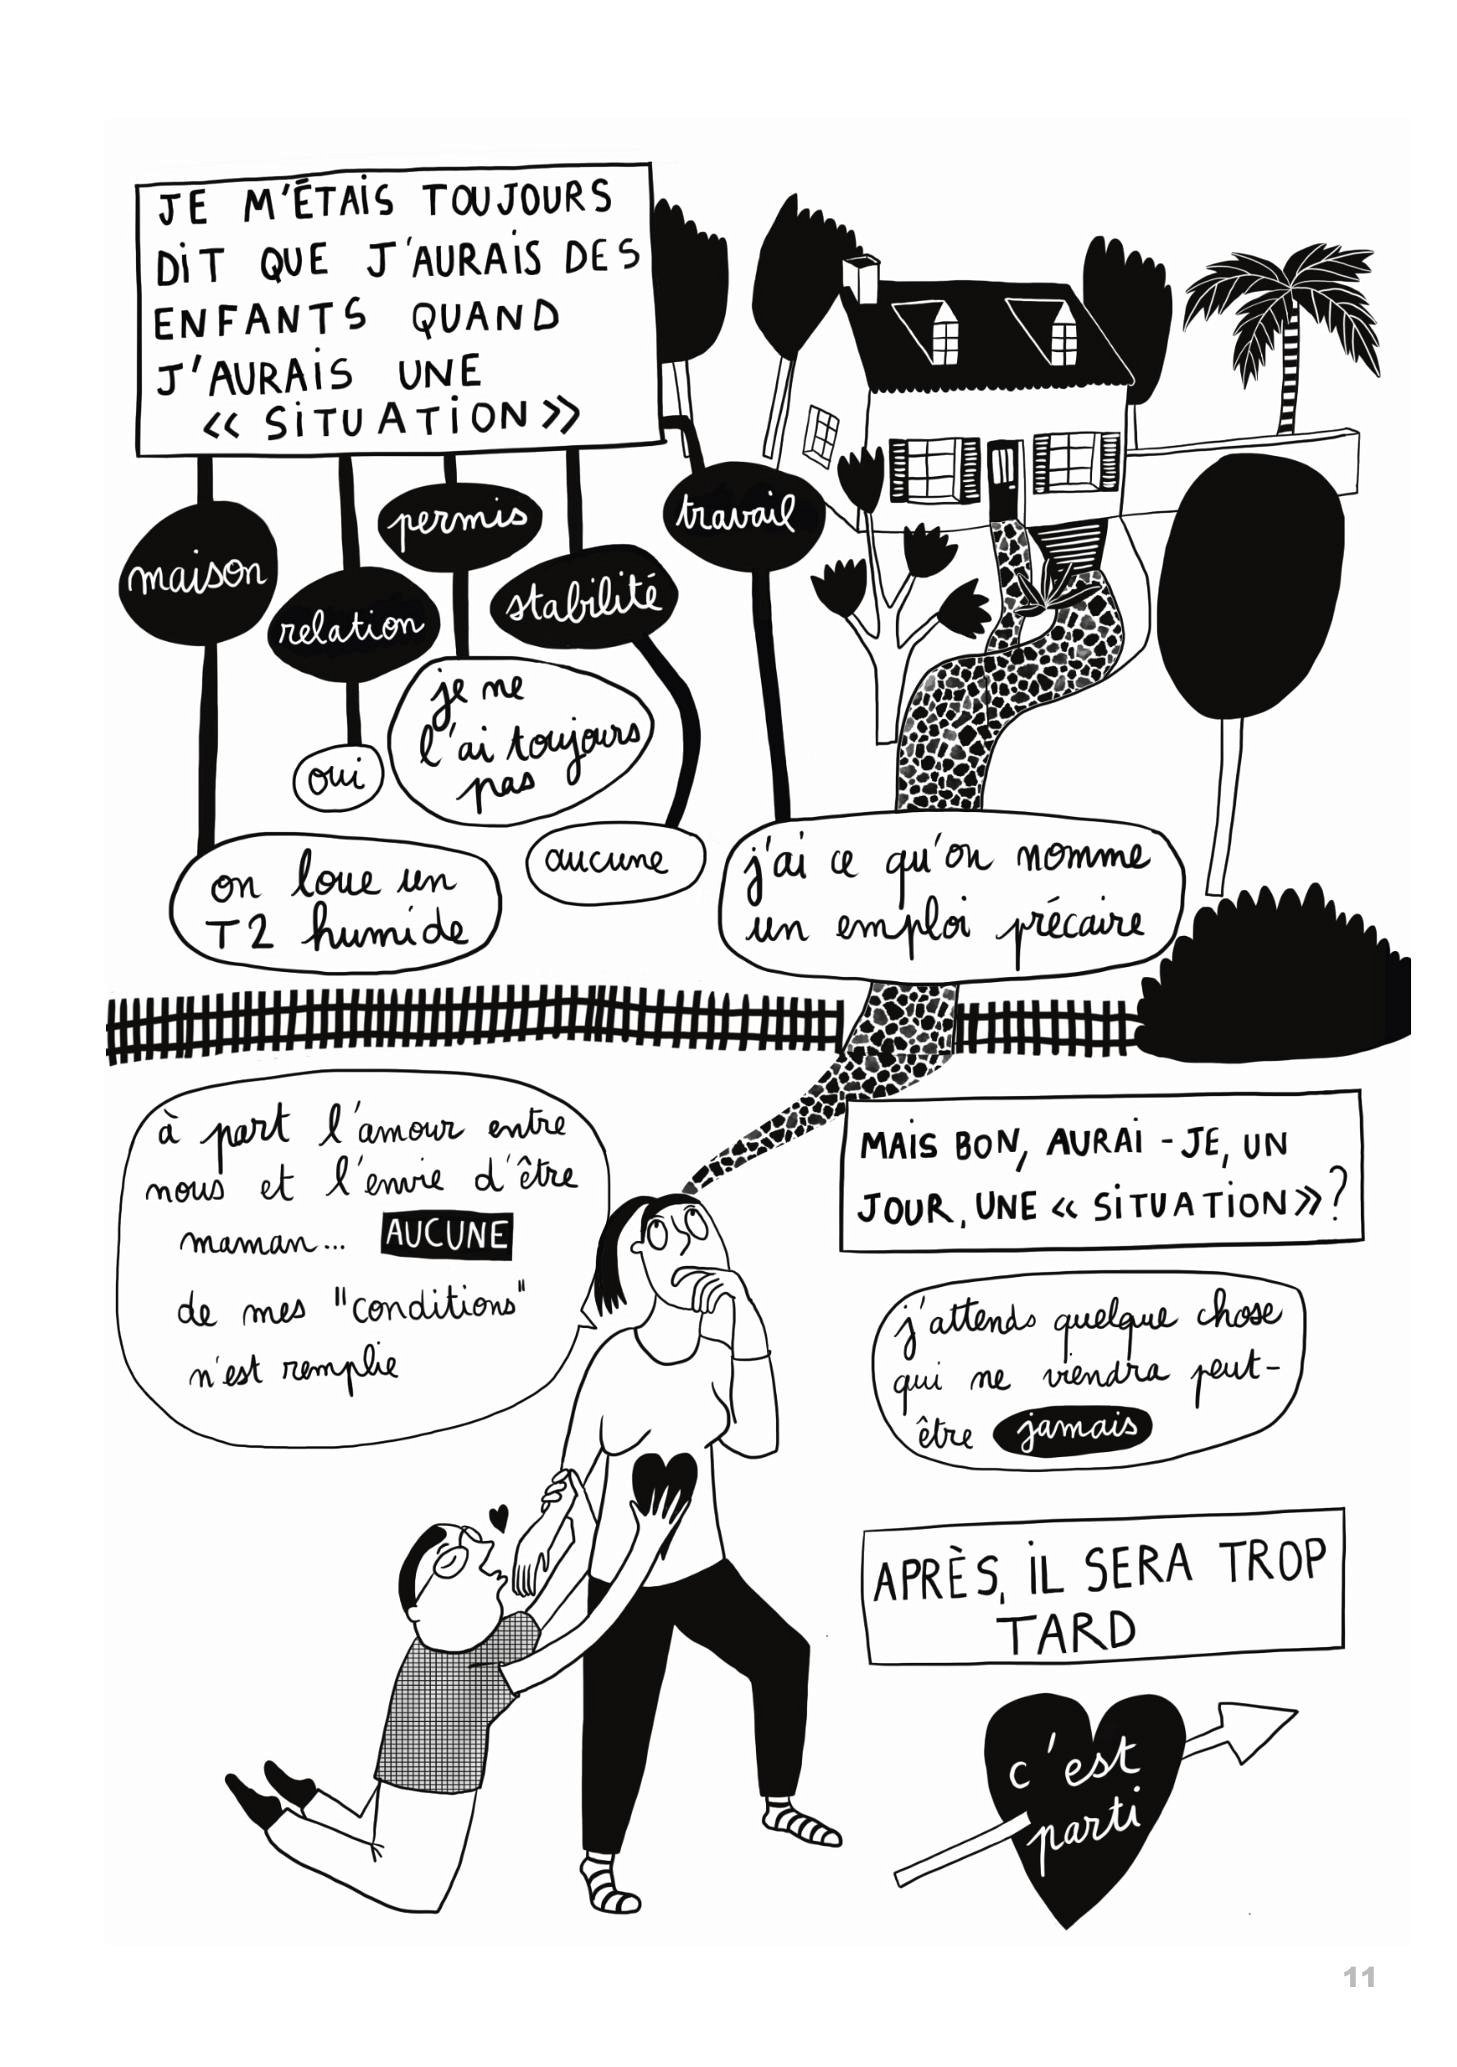 JE M'ÉTAIS TOUJOURS
DIT QUE J'AURAIS DES
ENFANTS QUAND
J'AURAIS UNE
« SITUATION »
maison
relation
permis
stabilité
travail
on loue un
T2 humide
oui
je ne
l'ai toujours
pas
aucune
j'ai ce qu'on nomme
un emploi précaire
à part l'amour entre
nous et l'envie d'être
maman... AUCUNE
de mes "conditions"
n'est remplie
MAIS BON, AURAI-JE, UN
JOUR, UNE « SITUATION » ?
j'attends quelque chose
qui ne viendra peut-
être jamais
APRÈS, IL SERA TROP
TARD
c'est
parti
11